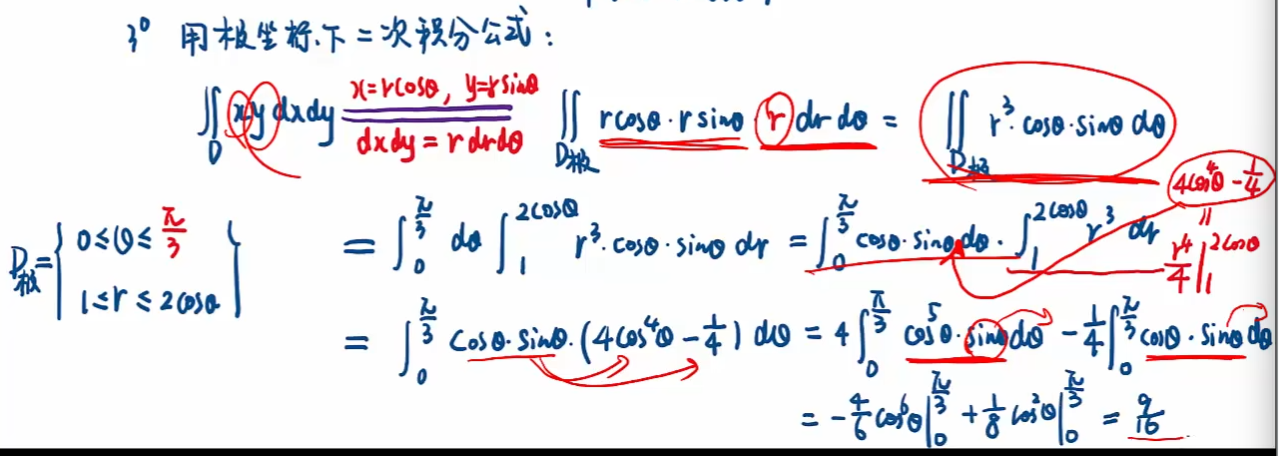 3° 用极坐标下二次积分公式：
∬_D xy dxdy x=rcosθ, y=rsinθ dxdy = r drdθ ∬_{D极} rcosθ·rsinθ r dr dθ = ∬_{D极} r³·cosθ·sinθ dθ
4cos⁴θ - 1/4
=
r⁴/4 |₁^{2cosθ}
D极 = { 0≤θ≤π/3
1≤r≤2cosθ }
= ∫₀^{π/3} dθ ∫₁^{2cosθ} r³·cosθ·sinθ dr = ∫₀^{π/3} cosθ·sinθ dθ·∫₁^{2cosθ} r³ dr
= ∫₀^{π/3} cosθ·sinθ·(4cos⁴θ - 1/4) dθ = 4∫₀^{π/3} cos⁵θ·sinθ dθ - 1/4 ∫₀^{π/3} cosθ·sinθ dθ
= -4/6 cos⁶θ |₀^{π/3} + 1/8 cos²θ |₀^{π/3} = 9/16